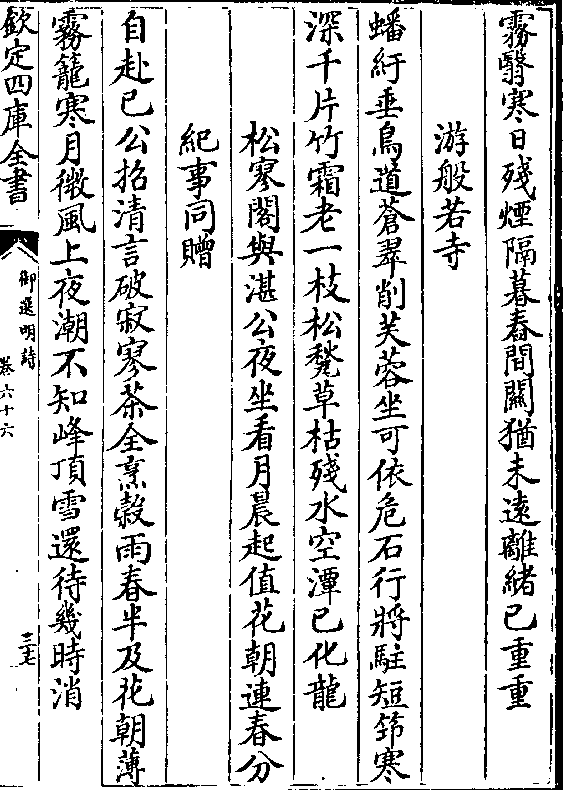 霧翳寒日殘煙隔暮舂間闗猶未遠離緒已重重
游般若寺
蟠紆垂鳥道蒼翠削芙蓉坐可依危石行將駐短筇寒
深千片竹霜老一枝松甃草枯殘水空潭已化龍
松寥閣與湛公夜坐看月晨起值花朝連春分
紀事同贈
自赴已公招清言破寂寥茶全烹榖雨春半及花朝薄
霧籠寒月微風上夜潮不知峰頂雪還待幾時消
欽定四庫全書
御選明詩
卷六十六
三七